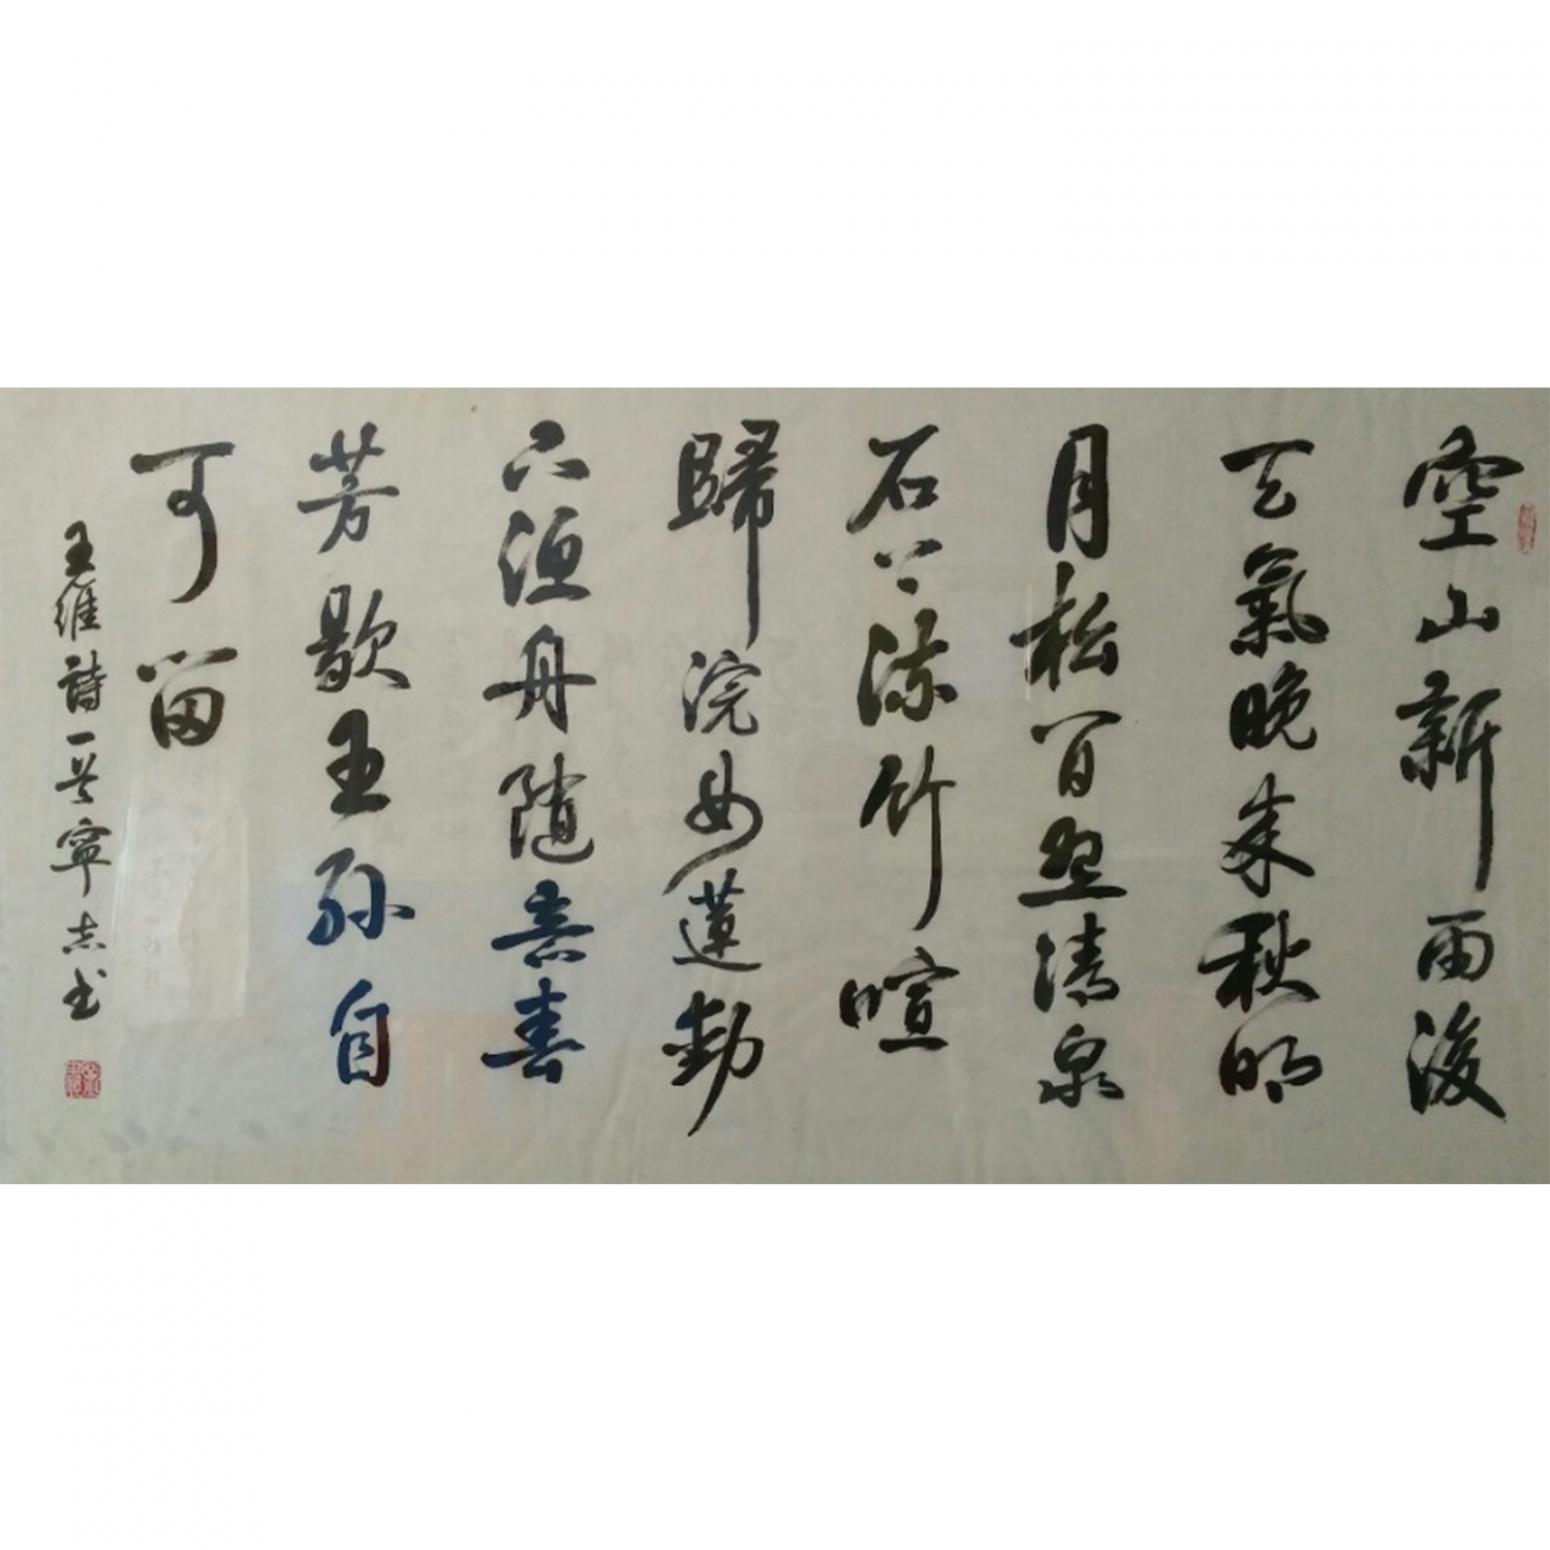 空山新雨後
天氣晚来秋明
月松间照清泉
石上流竹喧
歸浣女蓮動
下渔舟随意春
芳歇王孙自
可留
王維詩一首寧志书